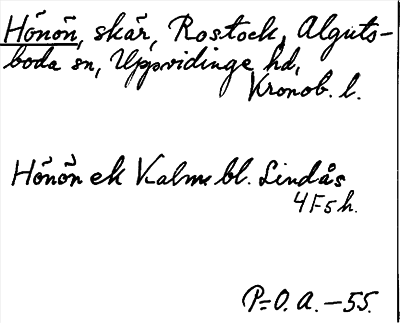 Hönön, skär, Rostock, Alguts-
boda sn, Uppvidinge hd,
Kronob. l.
Hönön ek Kalmar bl. Lindås
4 F 5 h.
P=O. A. - 55.